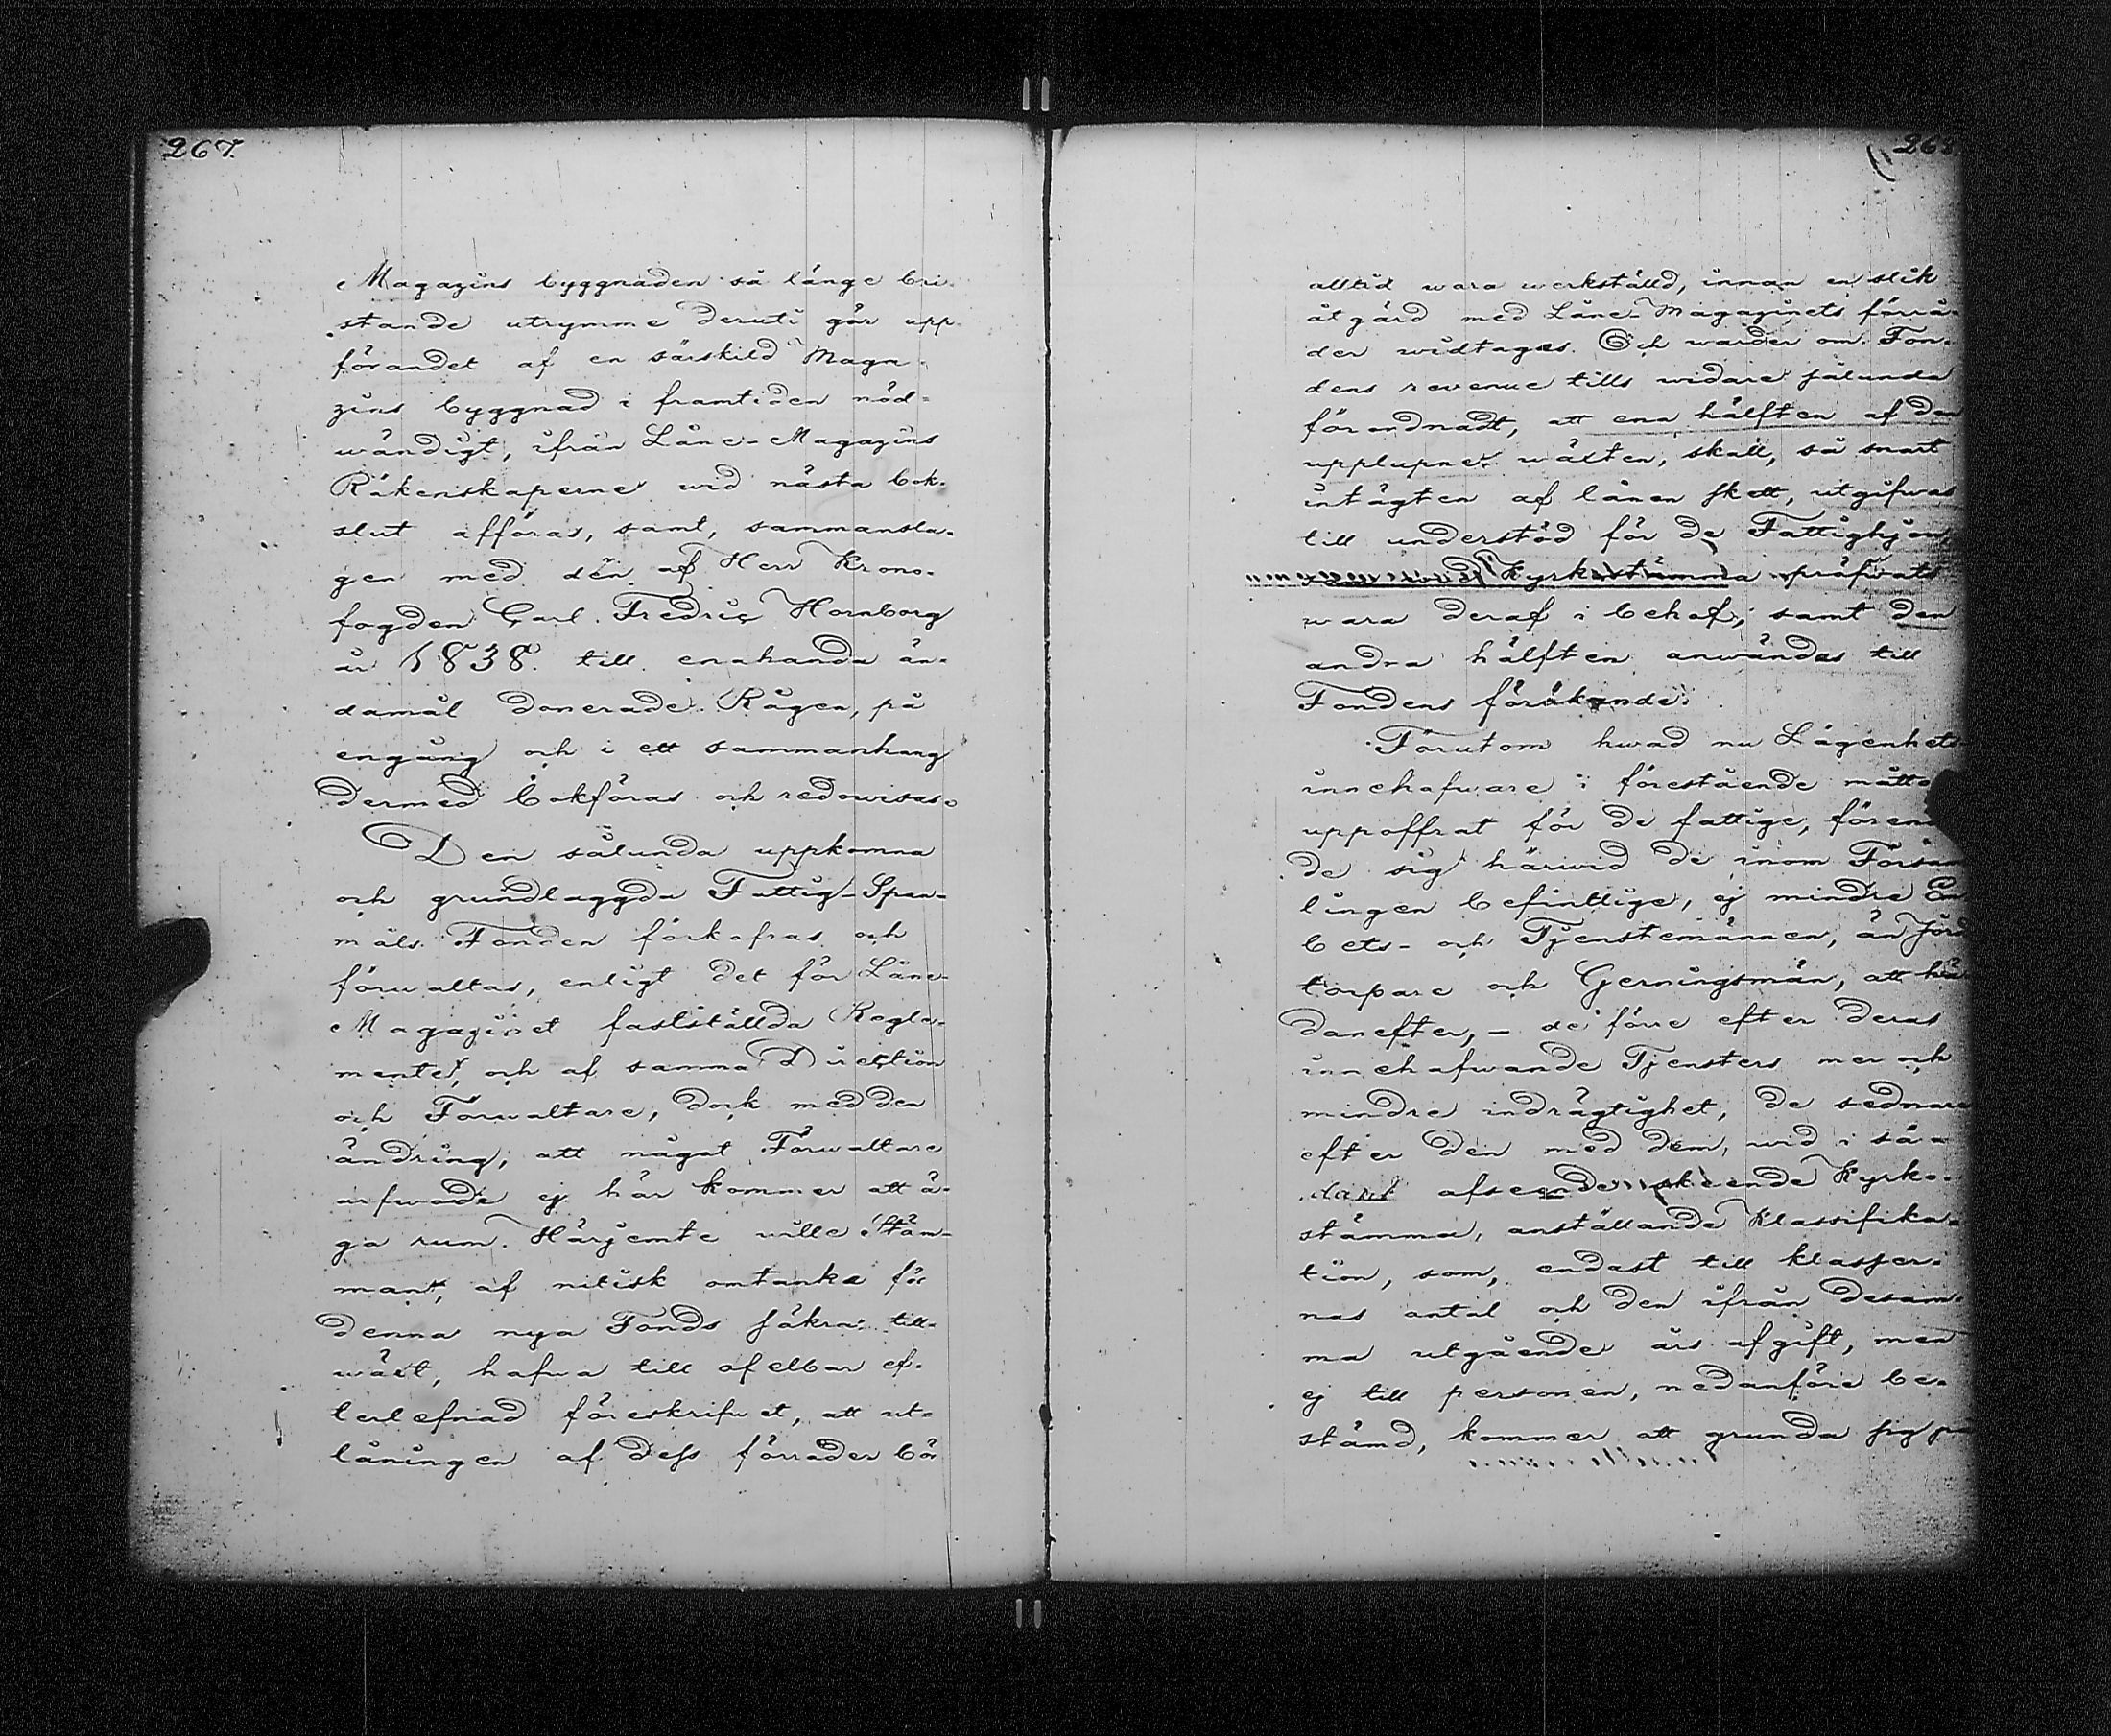 267.
Magazins byggnaden så länge bri-
stande utrymme deruti gör upp-
förandet af en särskild Maga-
zins byggnad i framtiden nöd-
wändigt, ifrån Låne-Magazins
Räkenskaperne wid nästa bok-
slut afföras, samt, sammansla-
gen med den af Herr Krono-
fogden Carl Fredric Hornborg
år 1838 till enahanda än-
damål donerade Rågen, på
engång och i ett sammanhang
dermed bokföras och redowisas.
Den sålunda uppkomna
och grundlaggda Fattig-Span-
måls Fonden förkofras och
förwaltas, enligt det för Låne-
Magazinet fastställda Regla-
mente, och af samma Direction
och Förwaltare, dock med den
ändring, att något Förwaltare
arfwode ej här kommer att ä-
ga rum. Härjemte wille Stäm-
man, af nitisk omtanka för
denna nya Fonds säkra till-
wäxt, hafwa till ofelbar ef-
terlefnad föreskrifwit, att ut-
låningen af dess förråder bör
268
alltid wara werkställd, innan en slik
åtgärd med Låne-Magazinets förrå-
der widtages. Och warder om Fon-
dens revenue tills widare sålunda
förordnadt, att ena hälften af den
upplupne wäxten, skall, så snart
intägten af lånen skett, utgifwas
till understöd för de Fattighjon,
Kyrkostämma pröfwats
wara deraf i behof; samt den
andra hälften användas till
Fondens förökande.
Förutom hwad nu Lägenhets-
innehafware i förestående måtto
uppoffrat för de fattige, förena
de sig härwid de inom Försam
lingen befintlige, ej mindre Em
bets- och Tjenstemännen, än Jord
torpare och Gerningsmän, att här
danefter, – de förre efter deras
innehafwande Tjensters mer och
mindre indrägtighet, de sednare
efter den med dem, wid i så-
dant afseende skeende Kyrko-
stämma, anställande Klassifika-
tion, som, endast till klasser-
nas antal och den ifrån desam-
ma utgående års afgift, men
ej till personen, nedanföre be-
stämd, kommer att grunda sig på